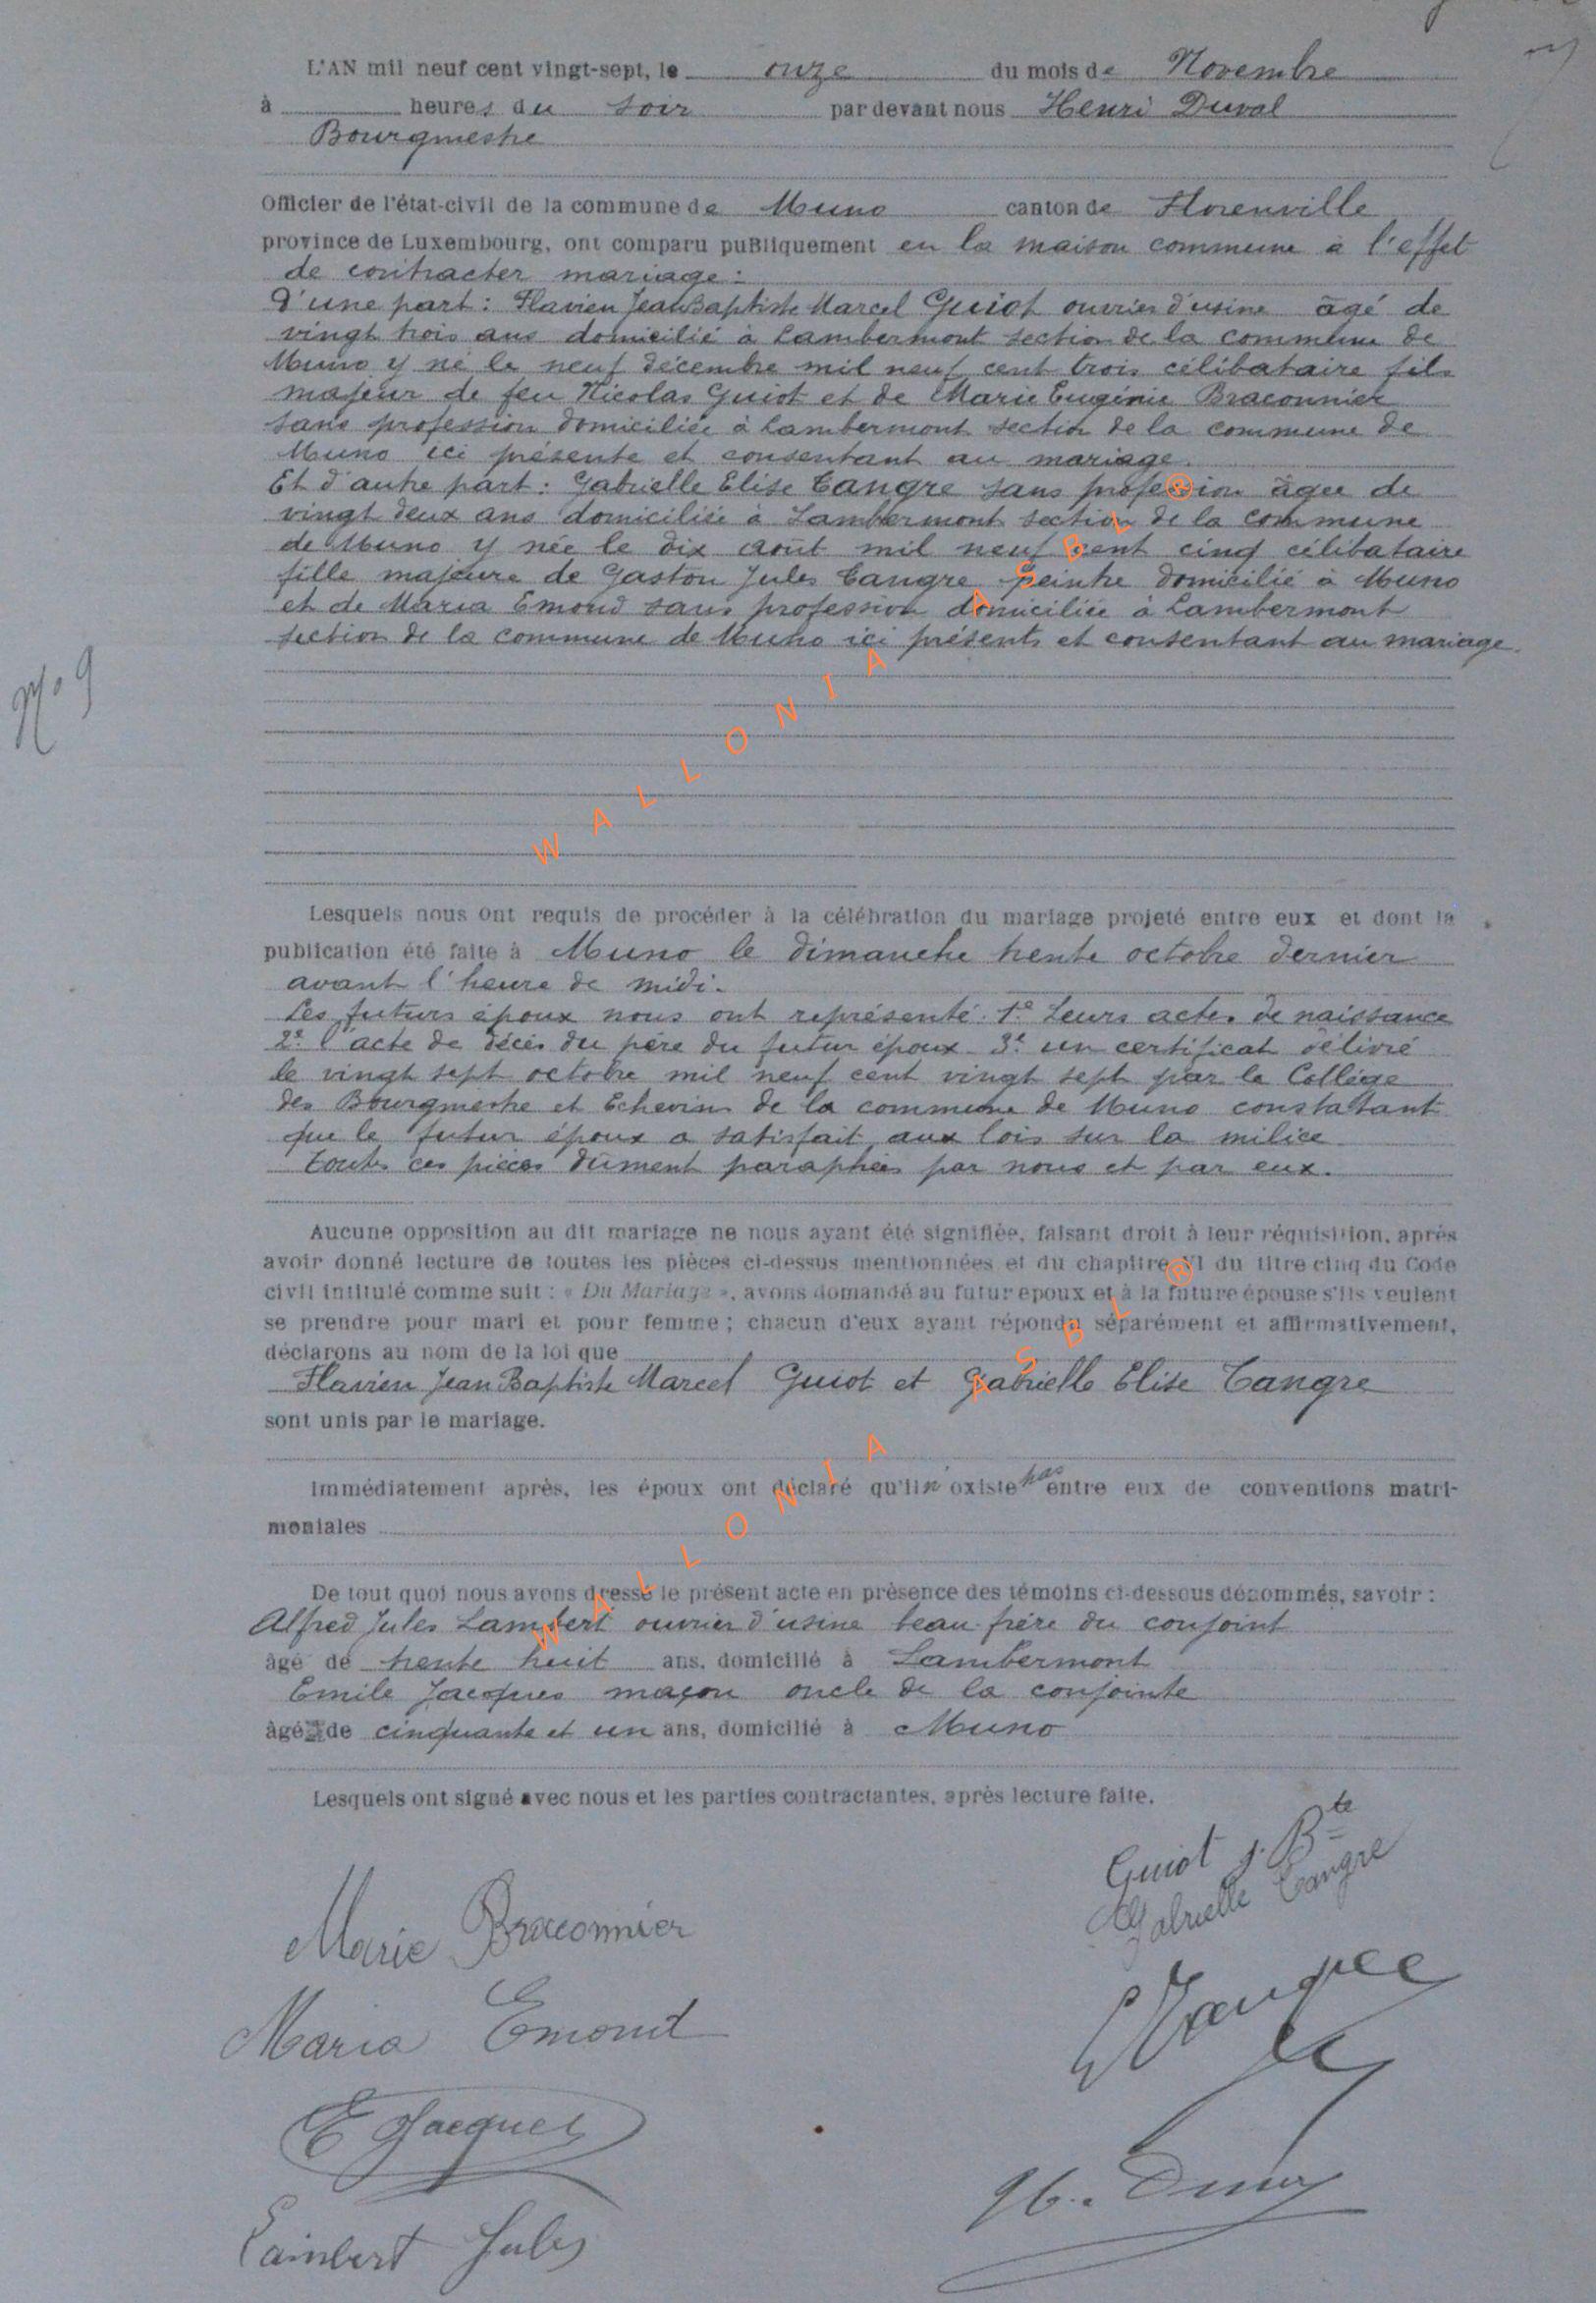 L'AN mil neuf cent vingt-sept, le onze du mois de Novembre
à heures du soir par devant nous Henri Duval
Bourgmestre
Officier de l'état-civil de la commune de Muno canton de Florenville
province de Luxembourg, ont comparu publiquement en la maison commune à l'effet
de contracter mariage :
D'une part : Flavien Jean Baptiste Marcel Guiot ouvrier d'usine âgé de
vingt trois ans domicilié à Lambermont section de la commune de
Muno y né le neuf décembre mil neuf cent trois célibataire fils
majeur de feu Nicolas Guiot et de Marie Eugénie Braconnier
sans profession domiciliée à Lambermont section de la commune de
Muno ici présente et consentant au mariage.
Et d'autre part : Gabrielle Elise Tangre sans profession âgée de
vingt deux ans domiciliée à Lambermont section de la commune
de Muno y née le dix août mil neuf cent cinq célibataire
fille majeure de Gaston Jules Tangre peintre domicilié à Muno
et de Maria Emond sans profession domiciliée à Lambermont
section de la commune de Muno ici présents et consentant au mariage.
N° 9
WALLONIA ASBL ®
Lesquels nous ont requis de procéder à la célébration du mariage projeté entre eux et dont la
publication été faite à Muno le dimanche trente octobre dernier
avant l'heure de midi.
Les futurs époux nous ont représenté. 1° Leurs actes de naissance
2° l'acte de décès du père du futur époux. 3° un certificat délivré
le vingt sept octobre mil neuf cent vingt sept par le Collège
des Bourgmestre et Echevins de la commune de Muno constatant
que le futur époux a satisfait aux lois sur la milice
toutes ces pièces dûment paraphées par nous et par eux.
Aucune opposition au dit mariage ne nous ayant été signifiée, faisant droit à leur réquisition, après
avoir donné lecture de toutes les pièces ci-dessus mentionnées et du chapitre VI du titre cinq du Code
civil intitulé comme suit : « Du Mariage », avons domandé au futur epoux et à la future épouse s'ils veulent
se prendre pour mari et pour femme ; chacun d'eux ayant répondu séparément et affirmativement,
déclarons au nom de la loi que
Flavien Jean Baptiste Marcel Guiot et Gabrielle Elise Tangre
sont unis par le mariage.
Immédiatement après, les époux ont déclaré qu'il n'existe pas entre eux de conventions matri-
moniales
De tout quoi nous avons dressé le présent acte en présence des témoins ci-dessous dénommés, savoir :
Alfred Jules Lambert ouvrier d'usine beau-frère du conjoint
âgé de trente huit ans, domicilié à Lambermont
Emile Jacques maçon oncle de la conjointe
âgé de cinquante et un ans, domicilié à Muno
WALLONIA ASBL ®
Lesquels ont signé avec nous et les parties contractantes, après lecture faite.
Guiot J. Bte
Gabrielle Tangre
Marie Braconnier
Tangre
Maria Emond
E Jacques
H. Duval
Lambert Jules